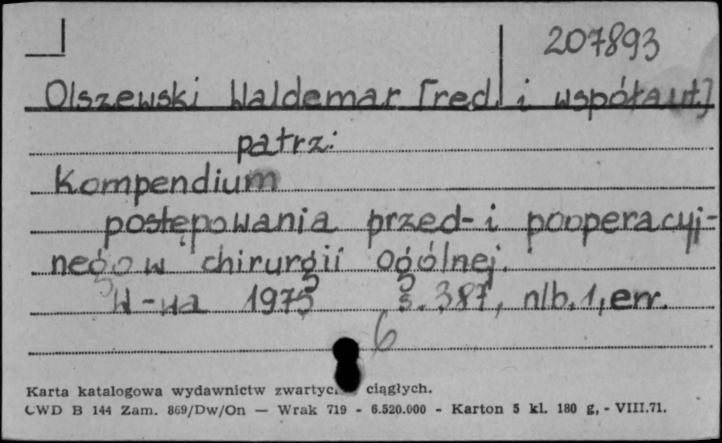 207893
Olszewski Waldemar [red. i współaut]
patrz:
Kompendium
postępowania przed- i pooperacyj-
nego w chirurgii ogólnej.
W-wa 1975 s. 387, nlb. 1, err.
6
Karta katalogowa wydawnictw ciągłych.
CWD B 144 Zam. 869/Dw/On — Wrak 719 - 6.520.000 - Karton 5 kl. 180 g, - VIII.71.